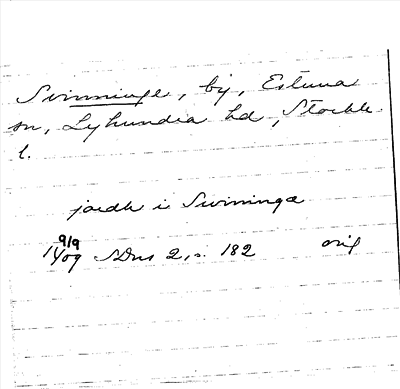 Svinninge, by, Estuna
sn, Lyhundra hd, Stockh.
l.
jordh i Swininga
9/9
1409 SDns 2, s. 182 orig